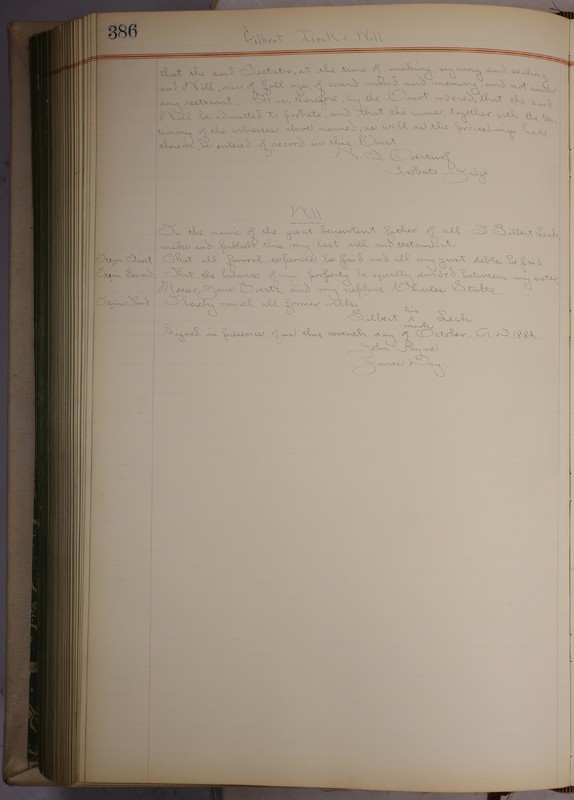 386
Gilbert Leak's Will
that the said Testator, at the time of making, signing and sealing
said Will, was of full age, of sound mind and memory, and not under
any restraint. It is, therefore, by the Court ordered, that the said
Will be admitted to probate, and that the same, together with the tes-
timony of the witnesses above named, as well as the proceedings had
herein, be entered of record in this Court.
Probate Judge
Will
In the name of the great benevolent father of all - I Gilbert Leak,
make and publish this my last will and testament.
That all funeral expenses be paid and all my just debts be paid
Item Second That the balance of my property be equally divided between my sister
and my nephew Charles
Item Third I hereby revoke all former wills
his
Gilbert x Leak
mark
Signed in presence of us this seventh day of October A.D. 1882
John Payne
James Day